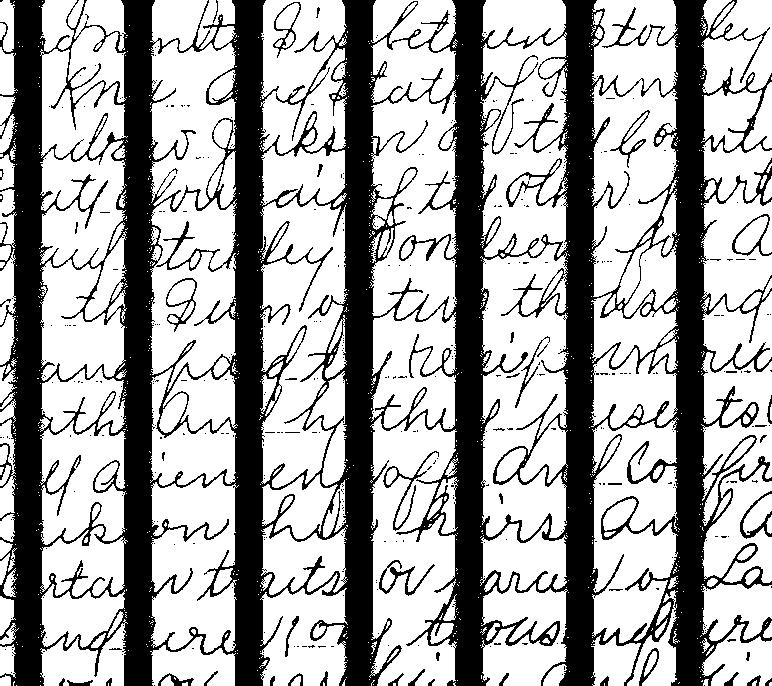 and ninety Six between Stockley
Knox And State of Tennessee
Andrew Jackson of the County
State aforesaid of the other part
Said Stockley Donelson for A
of the Sum of two thousand
hand paid the receipt whereof
hath And by these presents
Sell alien enfeoff And Confirm
Jackson his heirs And A
Certain tracts or parcels of La
Sand acres one thousand acre